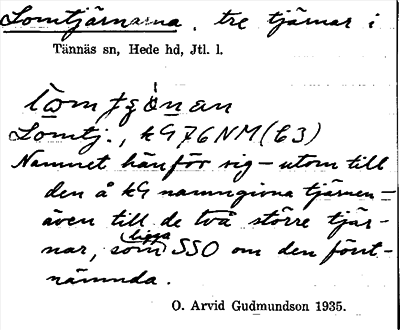 Lomtjärnarna, tre tjärnar i
Tännäs sn, Hede hd, Jtl. l.
Lomtj., kG 76 NM (C3)
Namnet hänför sig – utom till
den å kG namngivna tjärnen –
även till de två större tjär-
nar, som ligga SSO om den först-
nämnda.
O. Arvid Gudmundson 1935.